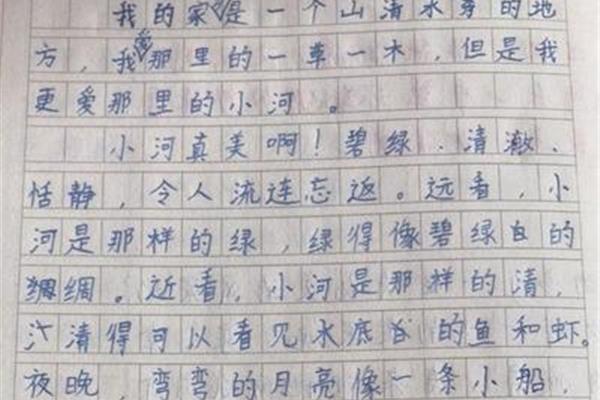 我的家是一个山清水秀的地
方，我爱那里的一草一木，但是我
更爱那里的小河。
小河真美啊！碧绿、清澈、
恬静，令人流连忘返。远看，小
河是那样的绿，绿得像碧绿色的
绸绸。近看，小河是那样的清，
清得可以看见水底的鱼和虾。
夜晚，弯弯的月亮像一条小船，